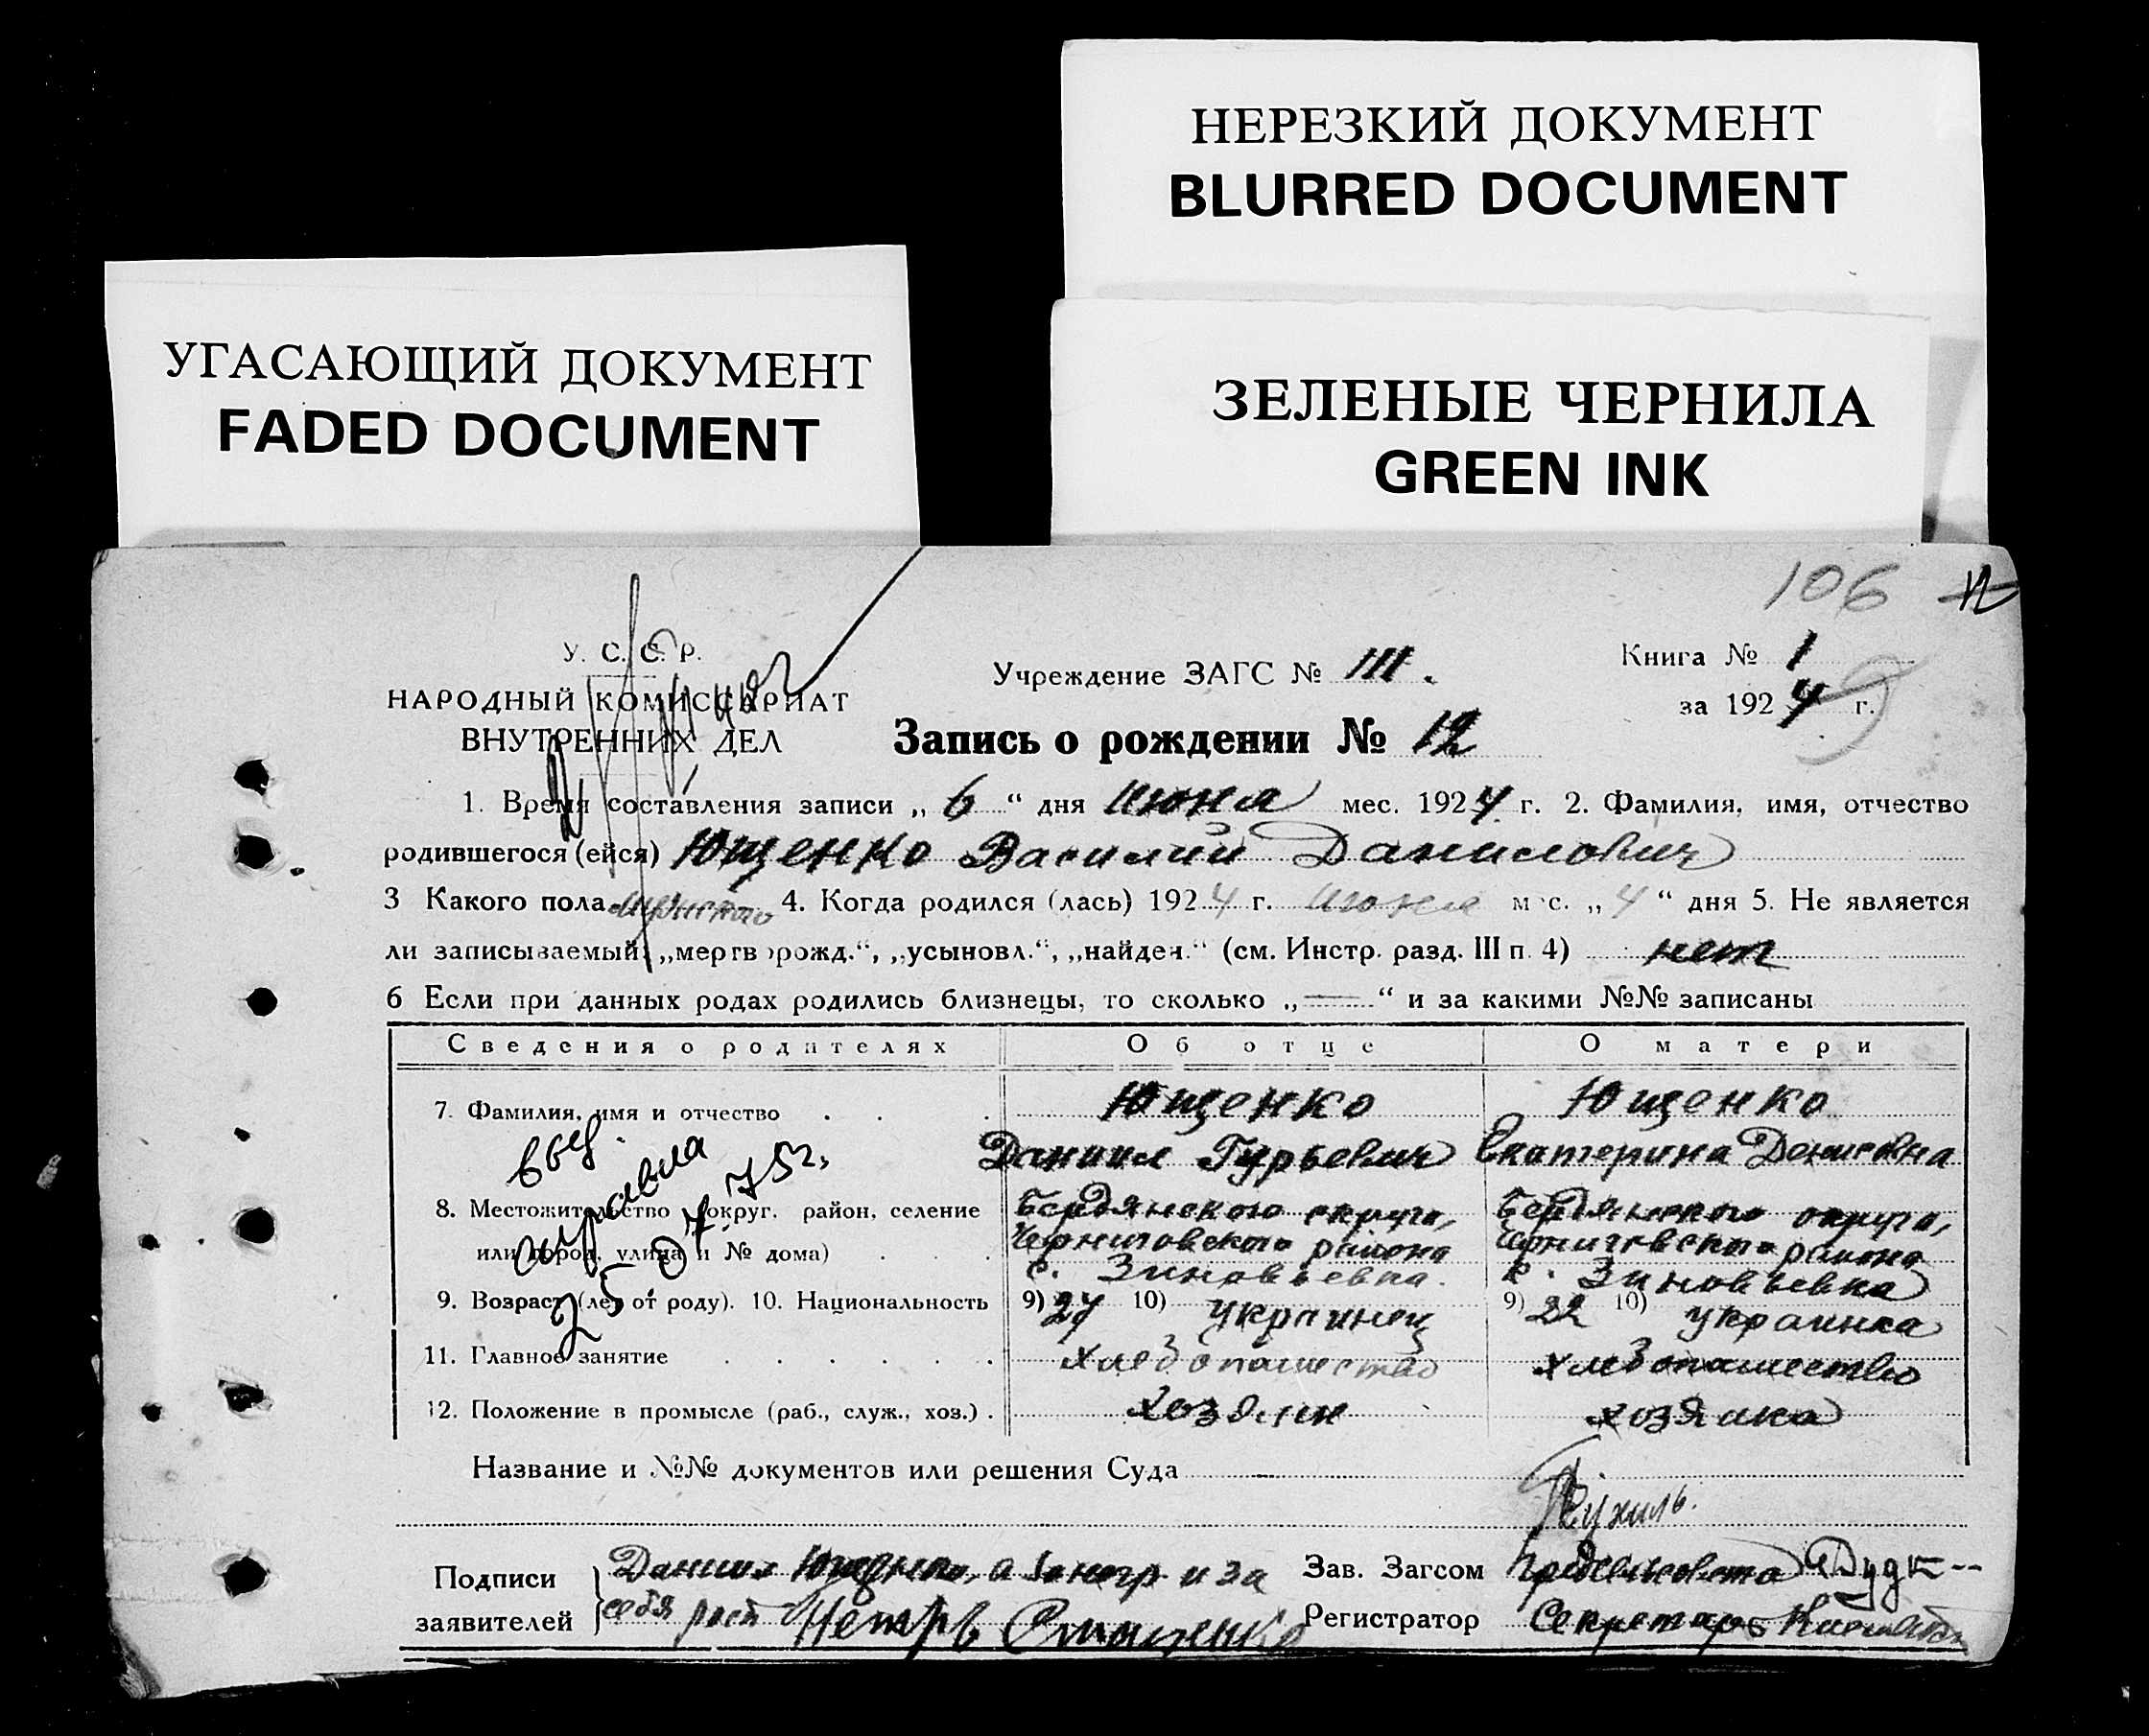 НЕРЕЗКИЙ ДОКУМЕНТ
BLURRED DOCUMENT
УГАСАЮЩИЙ ДОКУМЕНТ
FADED DOCUMENT
ЗЕЛЕНЫЕ ЧЕРНИЛА
GREEN INK
106
У. С. С. Р.
НАРОДНЫЙ КОМИССАРИАТ
ВНУТРЕННИХ ДЕЛ
Учреждение ЗАГС № III.
Книга № 1
за 1924 г.
Запись о рождении № 12
1. Время составления записи „ 6 “ дня Июня мес. 1924 г. 2. Фамилия, имя, отчество
родившегося (ейся) Ющенко Василий Данилович
3 Какого пола мужского 4. Когда родился (лась) 1924 г. Июня мес. „ 4 “ дня 5. Не является
ли записываемый: „мертворожд.“, „усыновл.“, „найден.“ (см. Инстр. разд. III п. 4) нет
6 Если при данных родах родились близнецы, то сколько „—“ и за какими №№ записаны
Сведения о родителях Об отце О матери
7. Фамилия, имя и отчество Ющенко Ющенко
Даниил Гурьевич Екатерина Денисовна
выд. справка
25.07.75г.
8. Местожительство (округ, район, селение Бердянского округа, Бердянского округа,
или город, улица и № дома) Черниговского района Черниговского района
с. Зиновьевка. с. Зиновьевка
9. Возраст (лет от роду). 10. Национальность 9) 27 10) украинец 9) 22 10) украинка
11. Главное занятие хлебопашество хлебопашество
12. Положение в промысле (раб., служ., хоз.) хозяин хозяйка
Название и №№ документов или решения Суда
Подписи Даниил Ющенко, а за негр и за Зав. Загсом Предсельсовета
заявителей себя расп Петръ Регистратор Секретарь